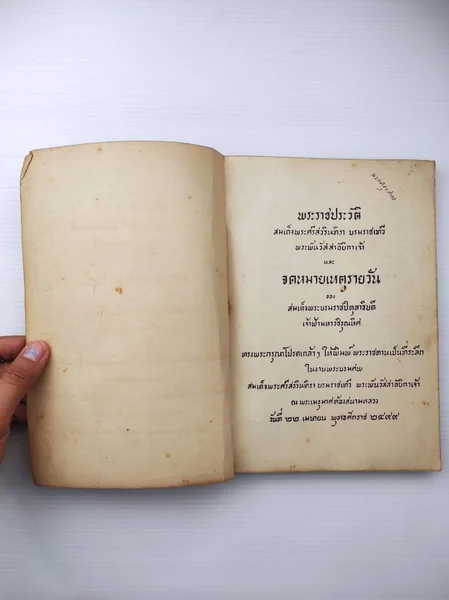 พระราชประวัติ
สมเด็จพระศรีสวรินทิรา บรมราชเทวี
พระพันวัสสาอัยิกาเจ้า
และ
จดหมายเหตุรายวัน
ของ
สมเด็จพระบรมราชปิตุลาธิบดี
เจ้าฟ้ามหาวชิรุณหิศ
ทรงพระกรุณาโปรดเกล้า ฯ ให้พิมพ์พระราชทานเป็นที่ระลึก
ในงานพระบรมศพ
สมเด็จพระศรีสวรินทิรา บรมราชเทวี พระพันวัสสาอัยิกาเจ้า
ณ พระเมรุมาศท้องสนามหลวง
วันที่ ๒๒ เมษายน พุทธศักราช ๒๔๙๙